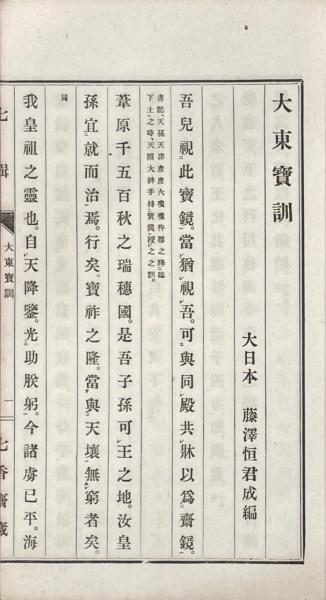 大東寶訓
大日本 藤澤恒君成編
吾兒視此寶鏡。當猶視吾。可與同殿共牀以爲齋鏡。
書記、天孫天津彥彥火瓊瓊杵尊之降臨
下土之時、天照大神手持寶鏡授之之訓。
葦原千五百秋之瑞穗國。是吾子孫可王之地。汝皇
孫宜就而治焉。行矣。寶祚之隆。當與天壤無窮者矣。
同
我皇祖之靈也。自天降鑒。光助朕躬。今諸虜已平。海
七
輯
大東寶訓
一
七香齋藏